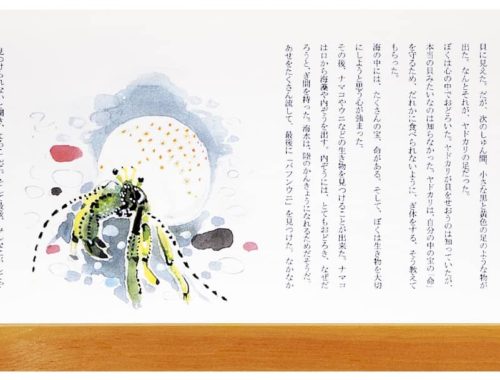 貝に見えた。だが、次のしゅん間、小さな黒と黄色の足のような物が
出た。なんとそれが、ヤドカリの足だった。
ぼくは心の中でおどろいた。ヤドカリが貝をせおうのは知っていたが、
本当の貝みたいなのは知らなかった。ヤドカリは、自分の中の宝の「命」
を守るため、だれかに食べられないように、ぎ休をする、そう教えて
もらった。
海の中には、たくさんの宝、命がある。そして、ぼくは生き物を大切
にしようと思う心が強まった。
その後、ナマコやウニなどの生き物を見つけることが出来た。ナマコ
は口から海藻や内ぞうを出す。内ぞうには、とてもおどろき、なぜだ
ろうと、ぎ問を持った。海水は、陸のかんきょうになれるためだそうだ。
あせをたくさん流して、最後に「バフンウニ」を見つけた。なかなか